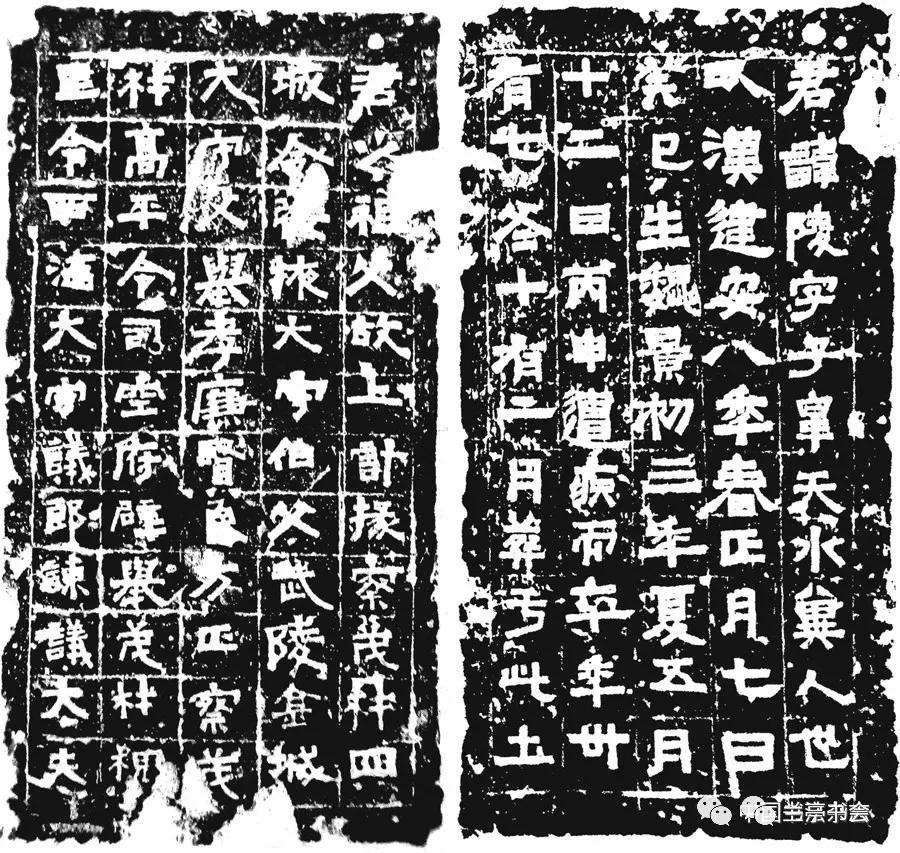 君諱陵字子寧天水冀人也
以漢建安八年春正月七日
癸巳生魏景初三年夏五月
十二日丙申遭疾而卒年卅
有七冬十有二月葬于此土
君祖父故上計掾察茂四
城令掖大守伯父武陵金城
大守父舉孝廉賢良方正察茂
高平令司空府辟舉茂材
令西海大守議郎諫議大夫
中国兰亭书会